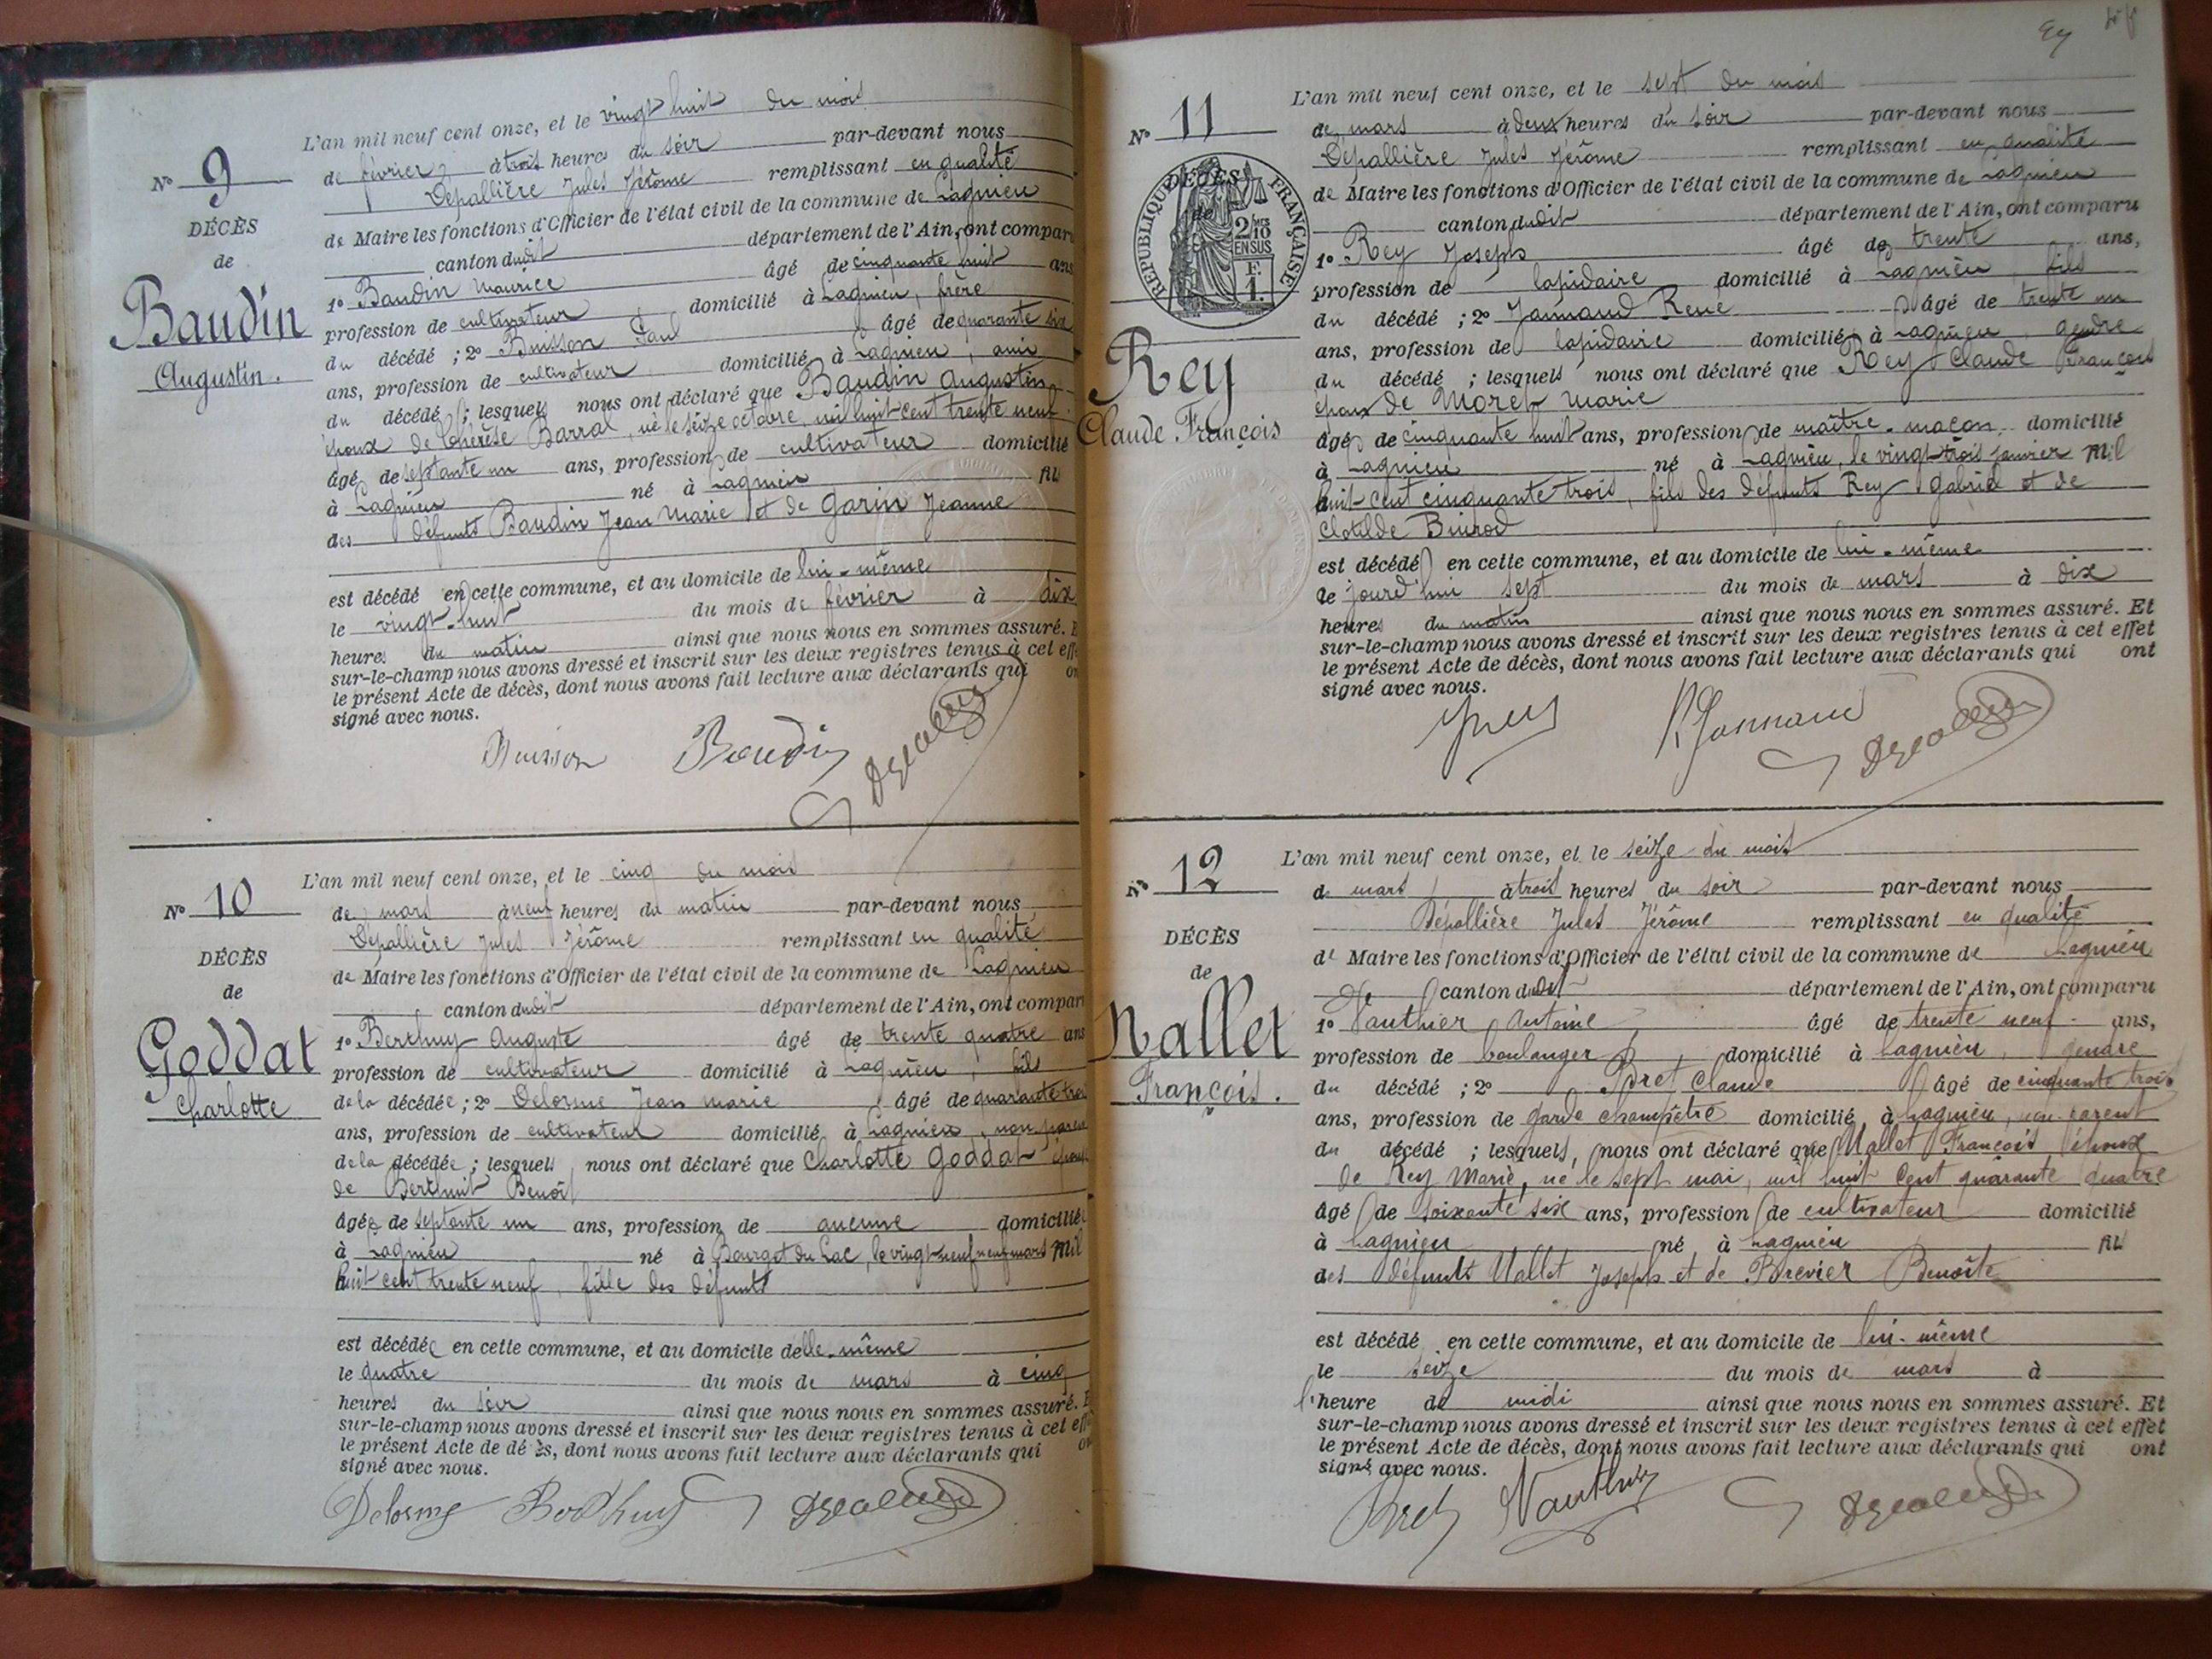 L'an mil neuf cent onze, et le vingt huit du mois
de février à trois heures du soir par-devant nous
Nº 9
Depallière Jules Jérôme remplissant en qualité
de Maire les fonctions d'Officier de l'état civil de la commune de Lagnieu
DÉCÈS
canton dudit département de l'Ain, ont compar
de
1º Baudin Maurice âgé de cinquante huit ans
Baudin
profession de cultivateur domicilié à Lagnieu, frère
du décédé ; 2º Buisson Paul âgé de quarante six
Augustin.
ans, profession de cultivateur domicilié à Lagnieu, ami
du décédé ; lesquels nous ont déclaré que Baudin Augustin
époux de Thérèse Barral, né le seize octobre, mil huit cent trente neuf
âgé de septante un ans, profession de cultivateur domicilié
à Lagnieu né à Lagnieu fils
des défunts Baudin Jean Marie et de Garin Jeanne
est décédé en cette commune, et au domicile de lui-même
le vingt-huit du mois de février à dix
heures du matin ainsi que nous nous en sommes assuré. E
sur-le-champ nous avons dressé et inscrit sur les deux registres tenus à cet eff
le présent Acte de décès, dont nous avons fait lecture aux déclarants qui on
signé avec nous.
Buisson Baudin
L'an mil neuf cent onze, et le cinq du mois
Nº 10
de mars à neuf heures du matin par-devant nous
Depallière Jules Jérôme remplissant en qualité
DÉCÈS
de Maire les fonctions d'Officier de l'état civil de la commune de Lagnieu
de
canton dudit département de l'Ain, ont compar
Goddat
1º Berthuy Auguste âgé de trente quatre ans
profession de cultivateur domicilié à Lagnieu, fils
Charlotte
de la décédée ; 2º Delorme Jean Marie âgé de quarante troi
ans, profession de cultivateur domicilié à Lagnieu, non paren
de la décédée ; lesquels nous ont déclaré que Charlotte Goddat
de Berthuit Benoît
âgée de septante un ans, profession de aucune domicilié
à Lagnieu né à Bourget du Lac, le vingt-neuf neuf mars mil
huit cent trente neuf, fille des défunts
est décédée en cette commune, et au domicile d'elle-même
le quatre du mois de mars à cinq
heures du soir ainsi que nous nous en sommes assuré. E
sur-le-champ nous avons dressé et inscrit sur les deux registres tenus à cet eff
le présent Acte de dé ès, dont nous avons fait lecture aux déclarants qui on
signé avec nous.
Delorme Berthuy
L'an mil neuf cent onze, et le sept du mois
Nº 11
de mars à deux heures du soir par-devant nous
Depallière Jules Jérôme remplissant en qualité
DÉCÈS
RÉPUBLIQUE FRANÇAISE
de
2/10 EN SUS
F. 1.
de Maire les fonctions d'Officier de l'état civil de la commune de Lagnieu
canton dudit département de l'Ain, ont comparu
1º Rey Joseph âgé de trente ans,
profession de lapidaire domicilié à Lagnieu, fils
du décédé ; 2º Jannaud René âgé de trente un
Rey
ans, profession de lapidaire domicilié à Lagnieu, gendre
du décédé ; lesquels nous ont déclaré que Rey Claude François
époux de Morel Marie
Claude François
âgé de cinquante huit ans, profession de maître-maçon domicilié
à Lagnieu né à Lagnieu, le vingt-trois janvier mil
huit-cent cinquante trois, fils des défunts Rey Gabriel et de
Clotilde
est décédé en cette commune, et au domicile de lui-même
le jourd'hui sept du mois de mars à dix
heures du matin ainsi que nous nous en sommes assuré. Et
sur-le-champ nous avons dressé et inscrit sur les deux registres tenus à cet effet
le présent Acte de décès, dont nous avons fait lecture aux déclarants qui ont
signé avec nous.
R Jannaud
L'an mil neuf cent onze, et le seize du mois
Nº 12
de mars à trois heures du soir par-devant nous
Dépallière Jules Jérôme remplissant en qualité
DÉCÈS
de Maire les fonctions d'Officier de l'état civil de la commune de Lagnieu
de
canton dudit département de l'Ain, ont comparu
Nallet
1º Vauthier Antoine âgé de trente neuf ans,
profession de boulanger, domicilié à Lagnieu, gendre
François.
du décédé ; 2º Pret Claude âgé de cinquante trois
ans, profession de garde champêtre domicilié à Lagnieu, non-parent
du décédé ; lesquels, nous ont déclaré que Nallet François, époux
de Rey Marie, né le sept mai, mil huit cent quarante quatre
âgé de soixante six ans, profession de cultivateur domicilié
à Lagnieu né à Lagnieu fils
des défunts Nallet Joseph et de Brevier Benoîte
est décédé en cette commune, et au domicile de lui-même
le seize du mois de mars à
l'heure de midi ainsi que nous nous en sommes assuré. Et
sur-le-champ nous avons dressé et inscrit sur les deux registres tenus à cet effet
le présent Acte de décès, dont nous avons fait lecture aux déclarants qui ont
signé avec nous.
Pret Vauthier